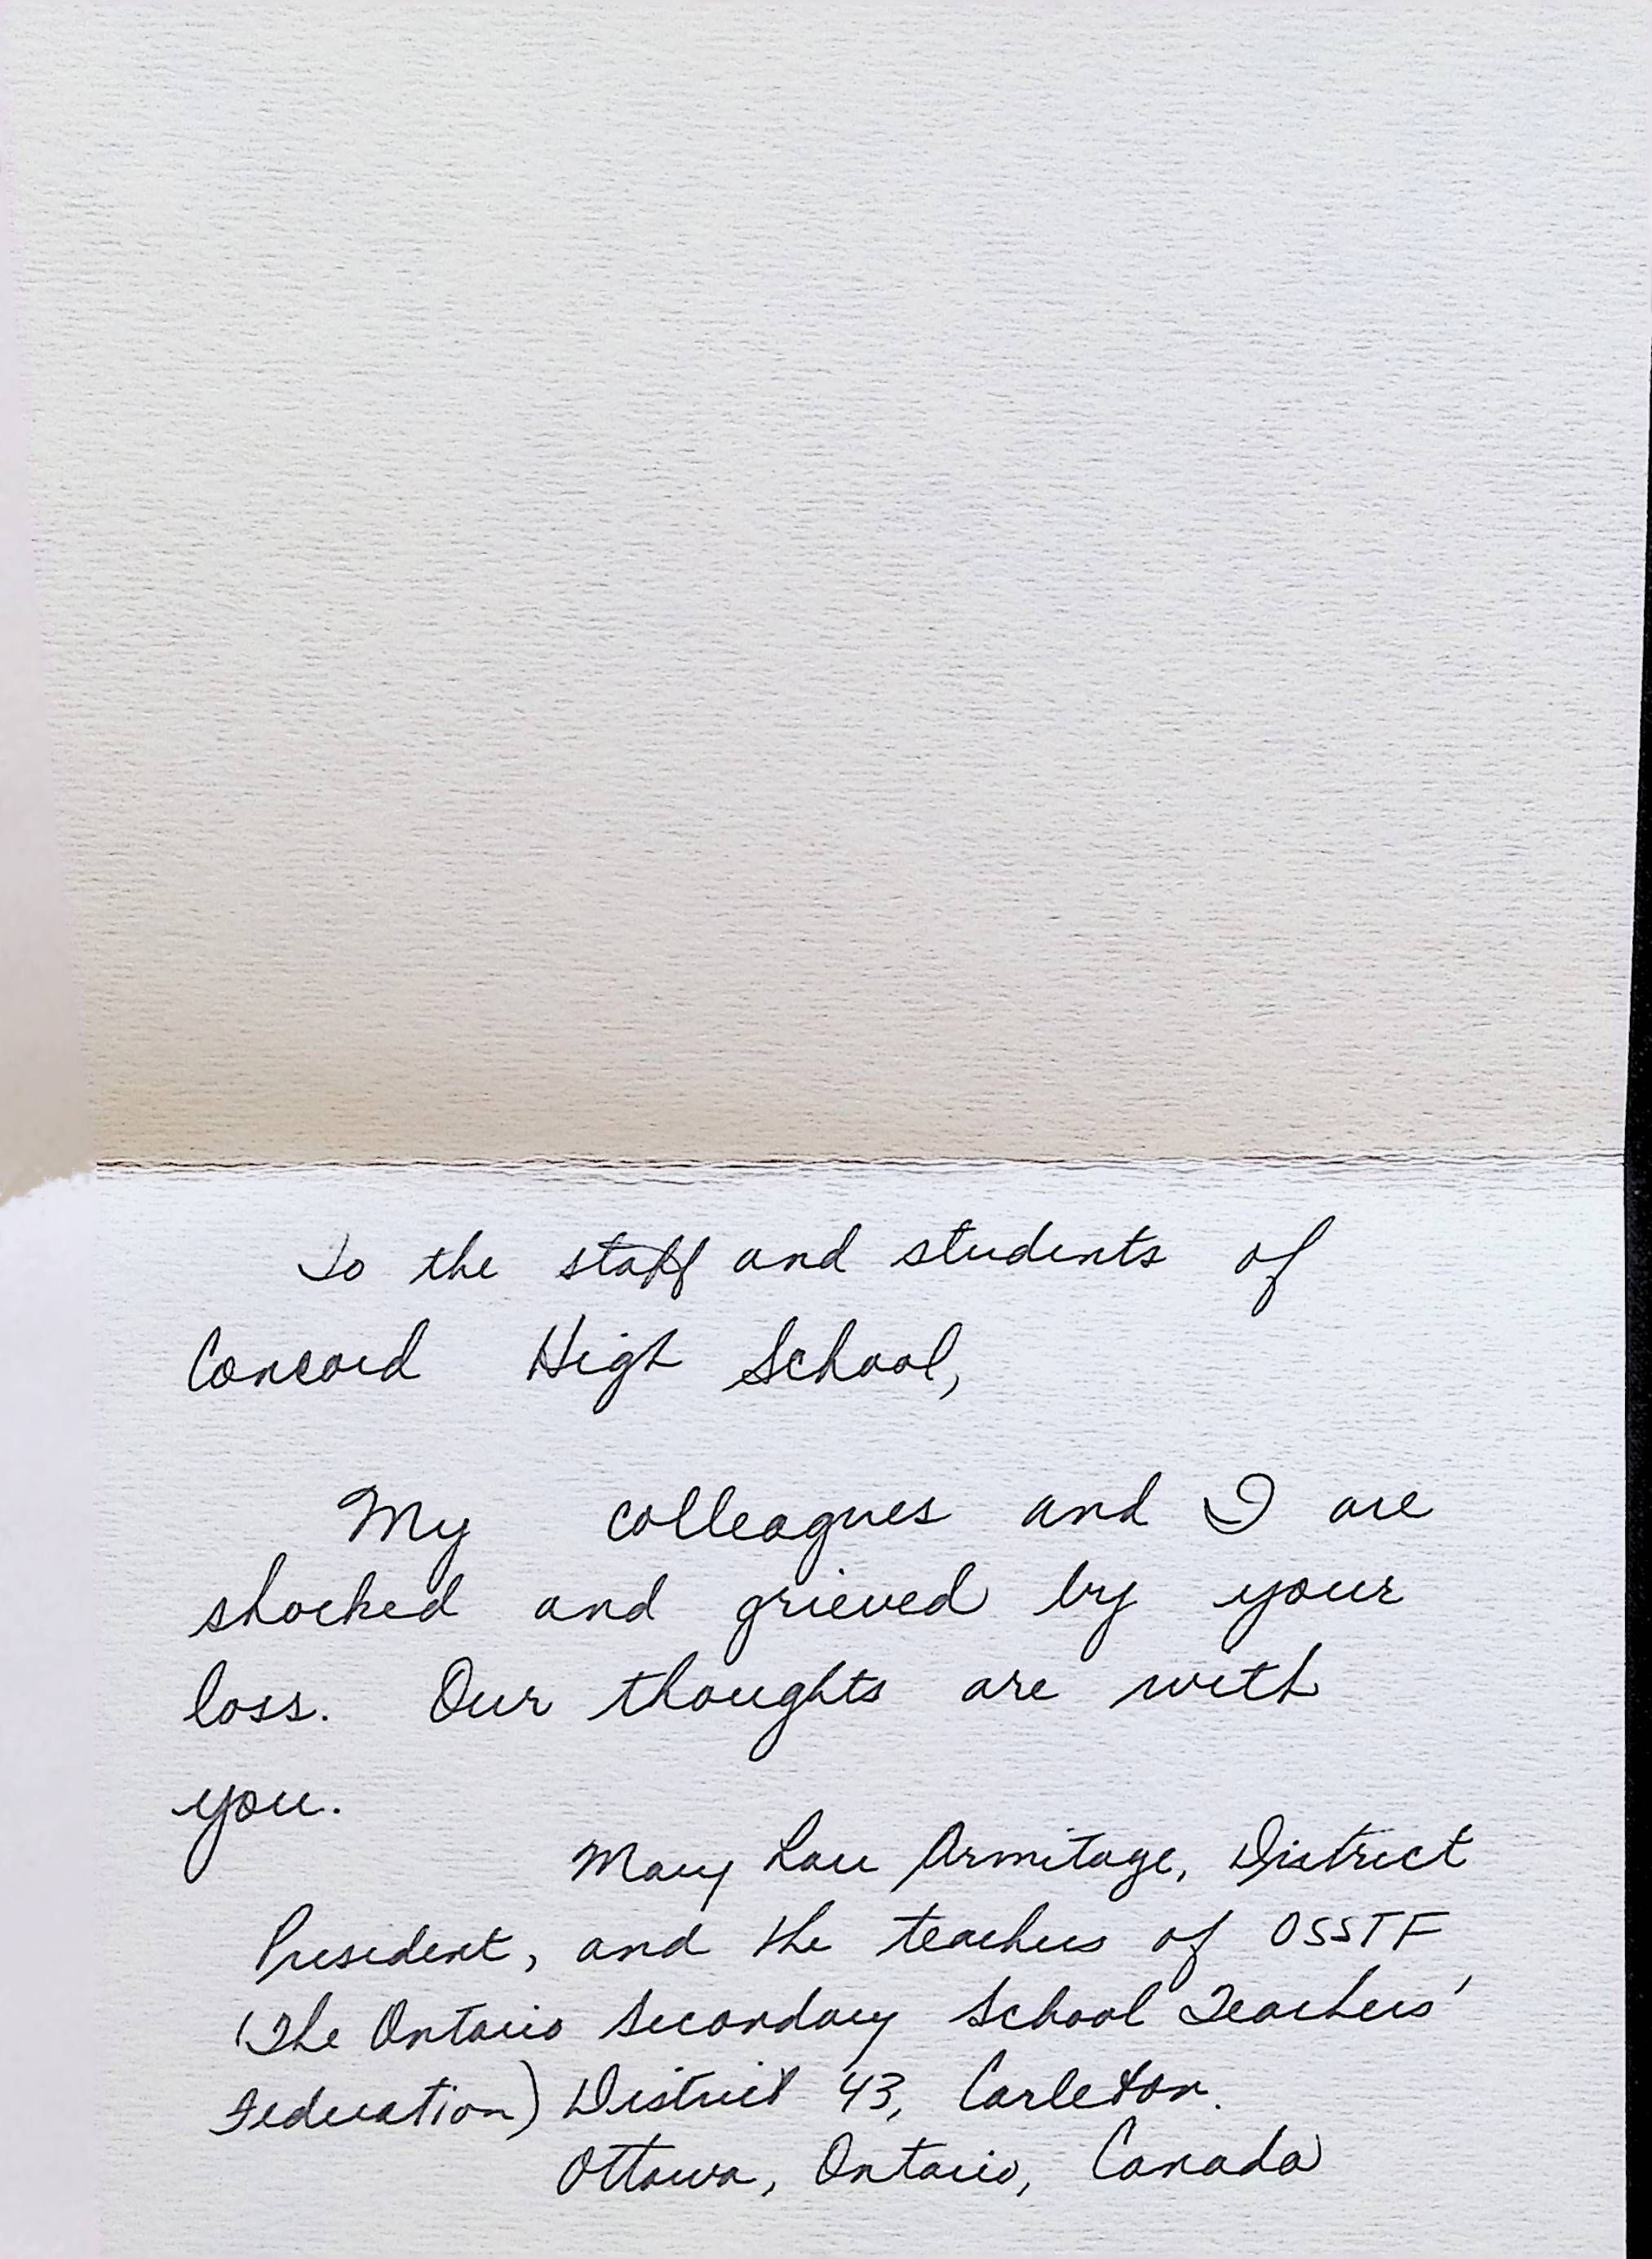 To the staff and students of
Concord High School,
My colleagues and I are
shocked and grieved by your
loss. Our thoughts are with
you.
Mary Lou Armitage, District
President, and the teachers of OSSTF
(The Ontario Secondary School Teachers'
Federation) District 43, Carleton.
Ottawa, Ontario, Canada